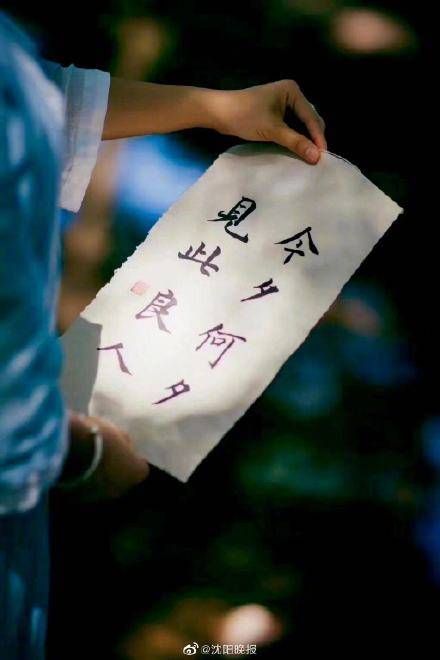 今夕何夕
見此良人
@沈阳晚报